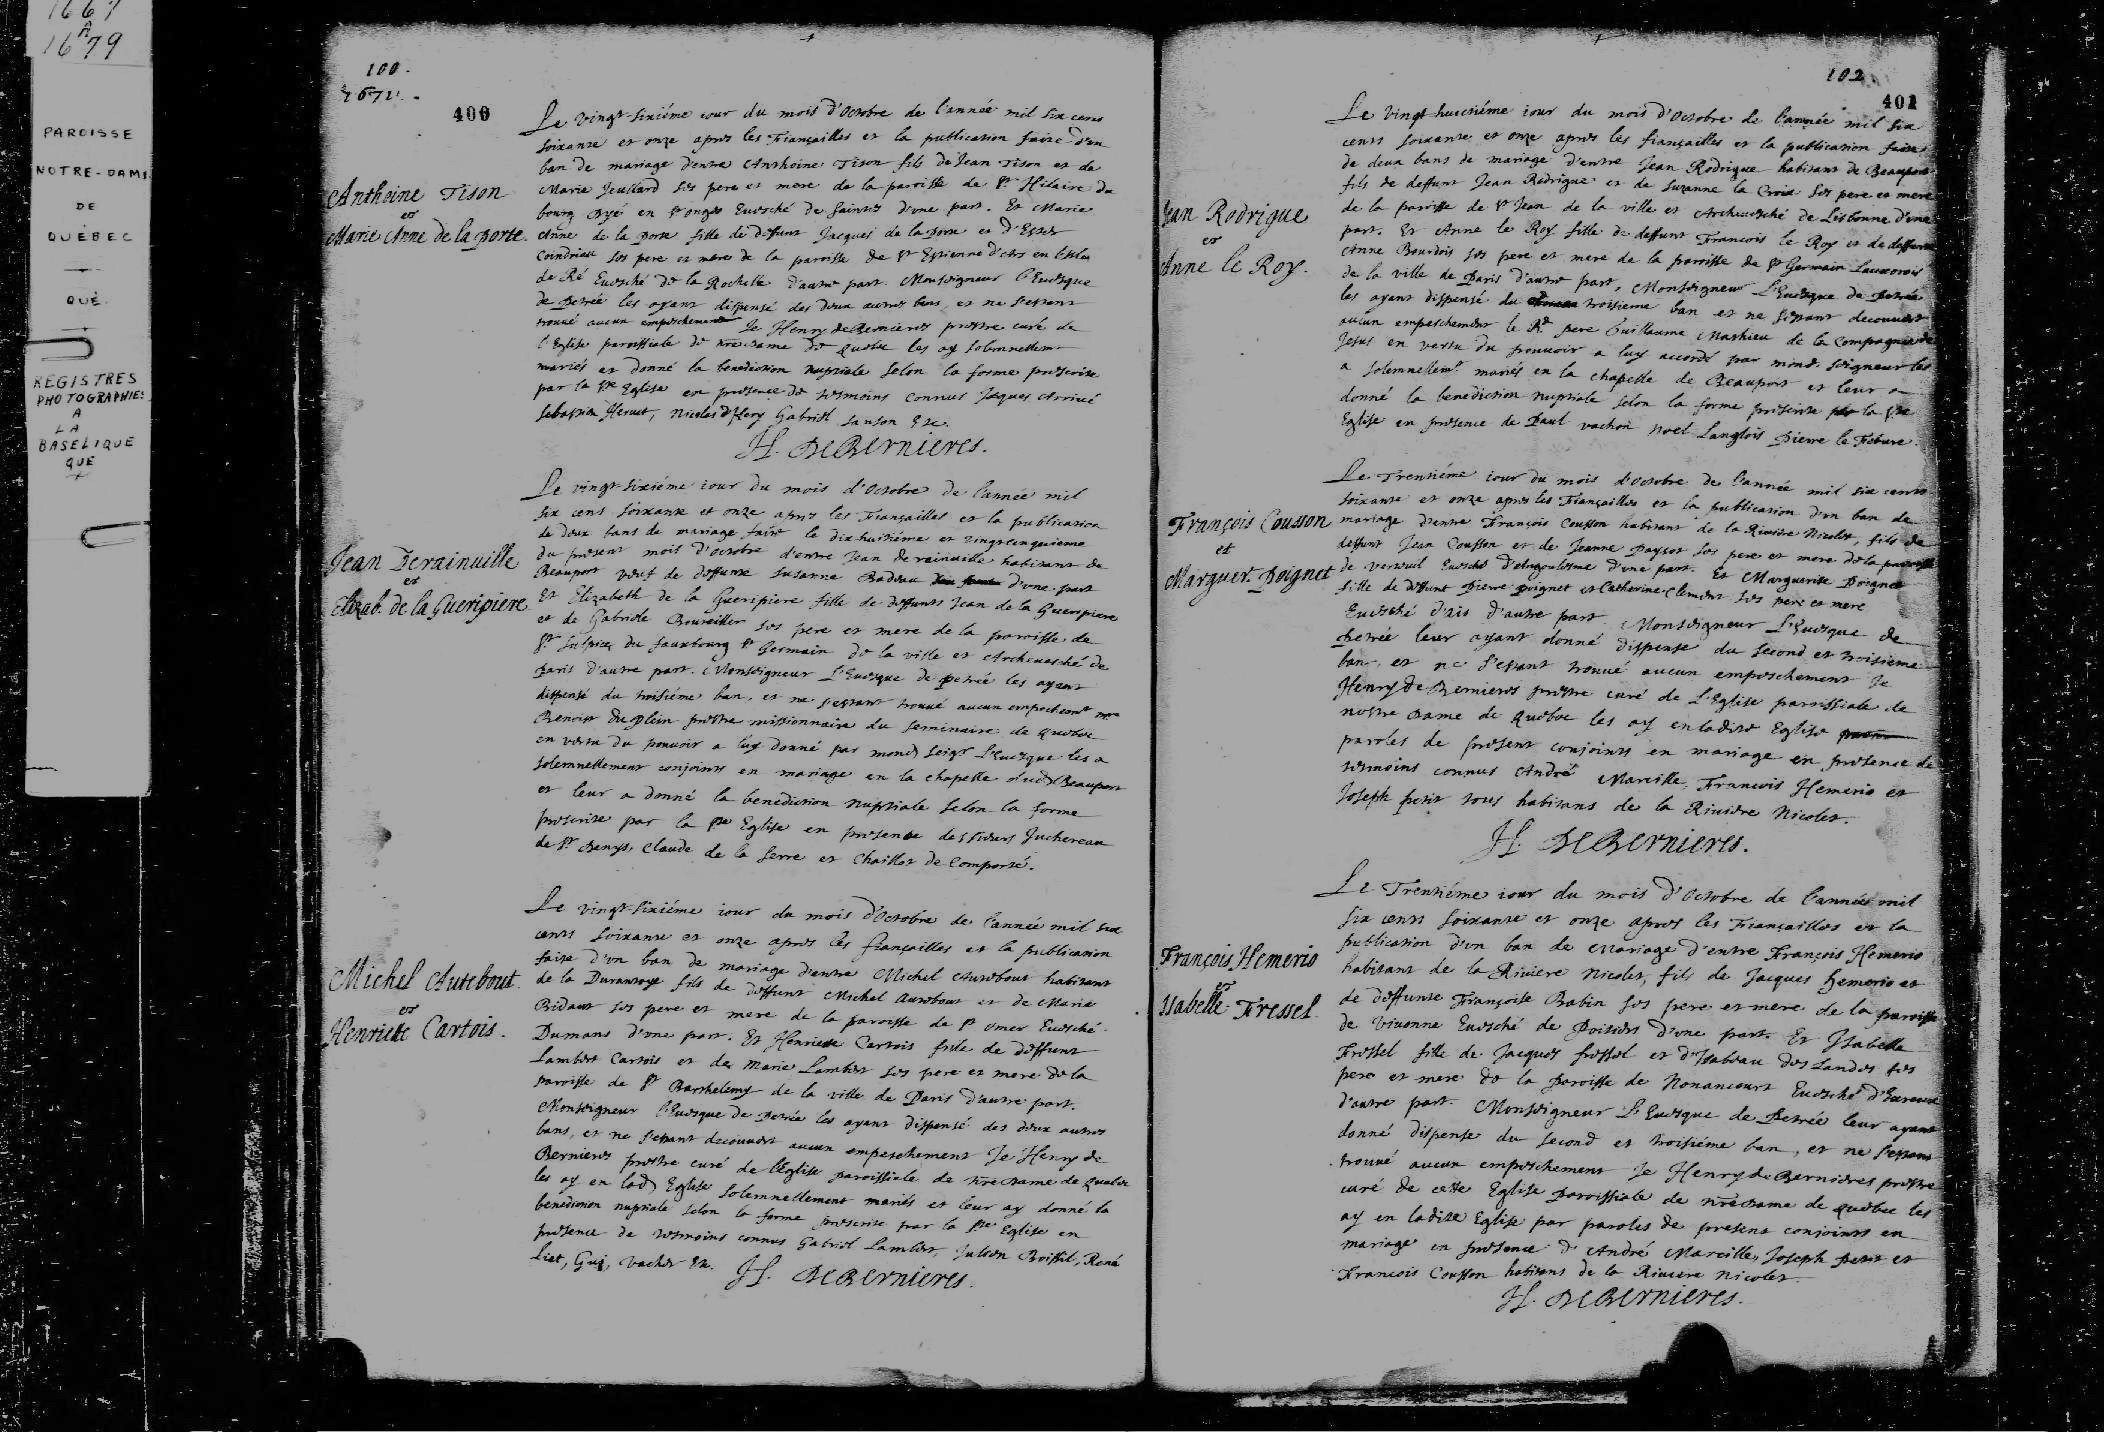 1667
A
1679
PAROISSE
NOTRE-DAME
DE
QUÉBEC
QUÉ.
REGISTRES
PHOTOGRAPHIÉS
A
LA
BASELIQUE
QUE
100.
1671.
400
Anthoine Tison
et
Marie Anne de la porte.
Le vingt sixiéme iour du mois d'Octobre de l'année mil six cens
soixante et onze apres les Fiançailles et la publication faite d'un
ban de mariage d'entre Anthoine Tison fils de Jean Tison et de
Marie Jeullard ses pere et mere de la paroisse de St Hilaire du
bourg en Euesché de Saintes d'une part. Et Marie
Anne de la Porte fille de deffunt Jacques de la Porte et d'Ester
Coindrieau ses pere et mere de la paroisse de St Estienne d'Ars en l'Isle
de Ré Euesché de la Rochelle d'autre part. Monseigneur l'Euesque
de Petrée les ayant dispensé des deux autres bans, et ne s'estant
trouué aucun empeschement Je Henry de Bernieres prestre curé de
l'Eglise paroissiale de nre Dame de Quebec les ay solemnellemt
mariés et donné la benediction nuptiale selon la forme prescrite
par la Ste Eglise en presence de tesmoins connus Jacques Arriué
Sebastien Heruet, Nicolas Gabriel Sanson Etc.
H. DeBernieres.
Jean Derainuille
et
Elizab. de la Gueripiere
Le vingt sixiéme iour du mois d'Octobre de l'année mil
six cens soixante et onze apres les Fiançailles et la publication
de deux bans de mariage faite le dixhuitiéme et vingtcinquieme
du present mois d'octobre d'entre Jean de rainuille habitant de
Beauport veuf de deffunte Susanne Badeau d'une part
Et Elizabeth de la Gueripiere fille de deffunts Jean de la Gueripiere
et de Gabriele Boureiller ses pere et mere de la paroisse de
St Sulpice du fauxbourg St Germain de la ville et Archeuesché de
Paris d'autre part. Monseigneur L'Euesque de Petrée les ayant
dispensé du troisiéme ban, et ne s'estant trouué aucun empeschemt mre
Benoist Duplein prestre missionnaire du seminaire de Quebec
en vertu du pouuoir a luy donné par mond Seigr L'Euesque les a
solemnellement conjoints en mariage en la chapelle dud Beauport
et leur a donné la benediction nuptiale selon la forme
prescrite par la Ste Eglise en presence des sieurs Juchereau
de St Denys, Claude de la Serre et Chaillot de Comporté.
Michel Autebout.
et
Henriette Cartois.
Le vingt sixiéme iour du mois d'Octobre de l'année mil six
cents soixante et onze apres les fiançailles et la publication
faite d'un ban de mariage d'entre Michel Autebout habitant
de la Durantaye fils de deffunt Michel Autebout et de Marie
Bidaut ses pere et mere de la paroisse de St Omer Euesché
Dumans d'une part. Et Henriette Cartois fille de deffunt
Lambert Cartois et de Marie Lambert ses pere et mere de la
paroisse de St Barthelemy de la ville de Paris d'autre part.
Monseigneur l'Euesque de Petrée les ayant dispensé des deux autres
bans, et ne s'estant decouuert aucun empeschement Je Henry de
Bernieres prestre curé de l'Eglise paroissiale de nre Dame de Quebec
les ay en lad Eglise solemnellement mariés et leur ay donné la
benediction nuptiale selon la forme prescrite par la Ste Eglise en
presence de tesmoins connus Gabriel Lambert, Julien Boissel, René
Siet, Guy, Vacher Etc. H. DeBernieres.
102
401
Jean Rodrigue
et
Anne le Roy.
Le vingt huictiéme iour du mois d'Octobre de l'année mil six
cents soixante et onze apres les fiançailles et la publication faite
de deux bans de mariage d'entre Jean Rodrigue habitant de Beauport
fils de deffunt Jean Rodrigue et de Suzanne la Croix ses pere et mere
de la paroisse de St Jean de la ville et Archeuesché de Lisbonne d'une
part. Et Anne le Roy fille de deffunt Francois le Roy et de deffunte
Anne Bourdois ses pere et mere de la paroisse de St Germain Lauxerois
de la ville de Paris d'autre part, Monseigneur L'Euesque de Petrée
les ayant dispensé du troisieme ban et ne s'estant decouuert
aucun empeschement le Rd pere Guillaume Mathieu de la Compagnie de
Jesus en vertu du pouuoir a luy accordé par mond. Seigneur les
a solemnellemt mariés en la chapelle de Beauport et leur a
donné la benediction nuptiale selon la forme prescrite par la Ste
Eglise en presence de Paul vachon noel Langlois Pierre le Febure.
François Cousson
et
Marguert Poignet
Le Trentiéme iour du mois d'Octobre de l'année mil six cents
soixante et onze apres les Fiançailles et la publication d'un ban de
mariage d'entre François Cousson habitant de la Riuiere Nicolet, fils de
deffunt Jean Cousson et de Jeanne Paysot ses pere et mere de la paroisse
de verteuil Euesché d'Angoulesme d'une part. Et Marguerite Poignet
fille de deffunt Pierre Poignet et Catherine Clement ses pere et mere
Euesché d'Ais d'autre part. Monseigneur L'Euesque de
Petrée leur ayant donné dispense du second et troisieme
ban, et ne s'estant trouué aucun empeschement Je
Henry de Bernieres prestre curé de L'Eglise paroissiale de
nostre Dame de Quebec les ay en ladite Eglise
paroles de present conjoints en mariage en presence de
tesmoins connus André Mareille, Francois Hemerio et
Joseph petit tous habitans de la Riuiere Nicolet.
H. DeBernieres.
François Hemerio
et
Isabelle Fressel.
Le Trentiéme iour du mois d'Octobre de l'année mil
six cents soixante et onze apres les Fiançailles et la
publication d'un ban de Mariage d'entre François Hemerio
habitant de la Riuiere Nicolet, fils de Jacques Hemerio et
de deffunte Françoise Babin ses pere et mere de la paroisse
de Viuonne Euesché de Poitiers d'une part. Et Isabelle
Fressel fille de Jacques fressel et d'Isabeau des Landes ses
pere et mere de la Paroisse de Nonancourt Euesché d'Eureux
d'autre part. Monseigneur L'Euesque de Petrée leur ayant
donné dispense du second et troisiéme ban, et ne s'estant
trouué aucun empeschement Je Henry de Bernieres prestre
curé de cette Eglise Paroissiale de nre Dame de Quebec les
ay en ladite Eglise par paroles de present conjoints en
mariage en presence d'André Mareille, Joseph petit et
Francois Cousson habitans de la Riuiere Nicolet.
H. DeBernieres.